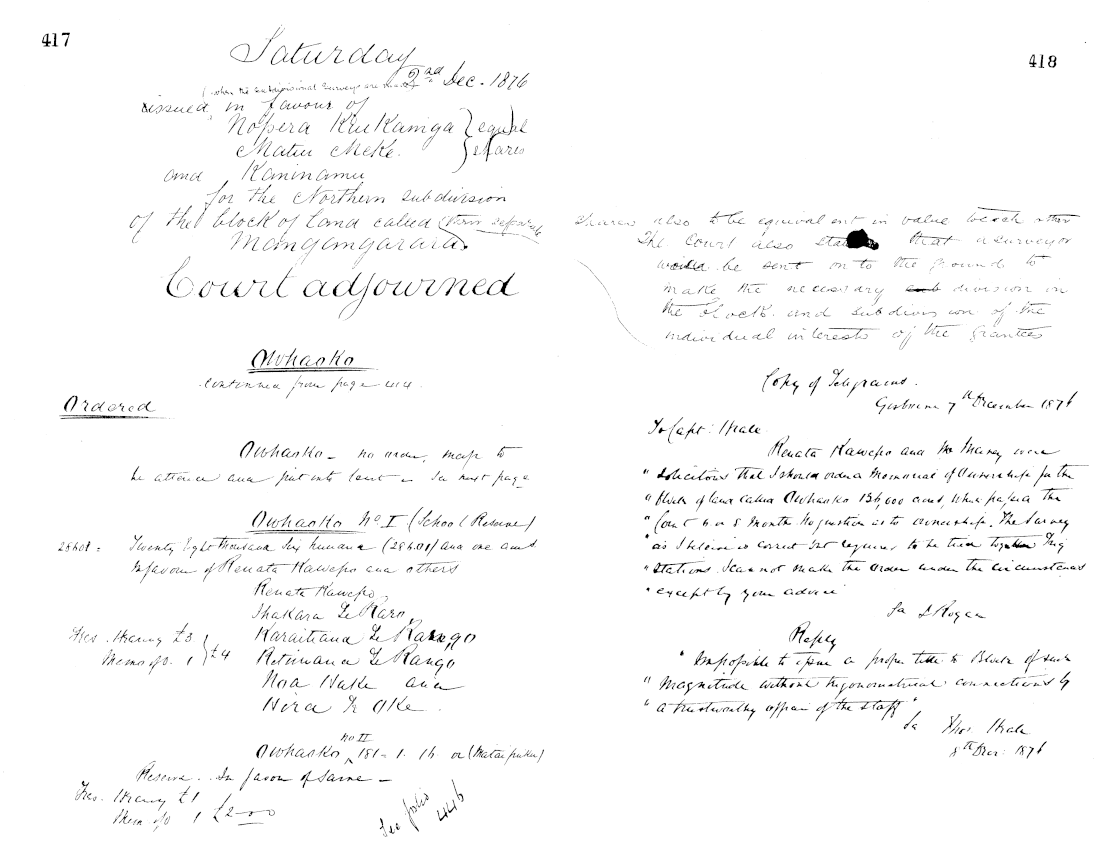 417
Saturday
2nd Dec. 1876
(when the subdivisional surveys are made)
issued in favour of
Nopera Kuikainga } equal
Matiu Meke. } shares
and Kaninamu
for the Northern subdivision
of the block of land called
Mangamgarara.
Court adjourned
Owhaoko
continued from page 414.
Ordered
Owhaoko - no order, map to
be altered and put into Court - See next page
Owhaoko No. I (School Reserve)
28601 = Twenty Eight thousand Six hundred (28601) and one acres
In favour of Renata Kawepo and others
Renata Kawepo,
Ihakara Te Raro,
Karaitiana Te Rango
Retimana Te Rango
Noa Huke and
Hira Te Oke.
Fees. Hearing £3
Memo of O. 1 } £4
Owhaoko No II 181- 1. 16 or (Matai puku)
Reserve. In favor of Same -
Fees. Hearing £1
Mem of O 1 £2-0-0
See folio
446
418
shares also to be equivalent in value to each other
The Court also that a surveyor
would be sent on to the ground to
make the necessary sub division in
the block and subdivision of the
individual interests of the grantees
Copy of Telegrams.
Gisborne 7th December 1876
To Capt: Heale
Renata Kawepo and were
"solicitous that I should order a Memorial of Ownership for the
"Block of land called Owhaoko 136,000 acres, which passed the
"Court 6 or 8 months. No question as to ownership. The Survey
"as I believe is correct but requires to be tied together Trig
"Stations. I cannot make the order under the circumstances
"except by your advice
Sd J Rogan
Reply
"Impossible to issue a proper title to Block of such
"magnitude without trigonometrical connections by
"a trustworthy officer of the staff"
Sd Thos. Heale
8th Decr: 1876